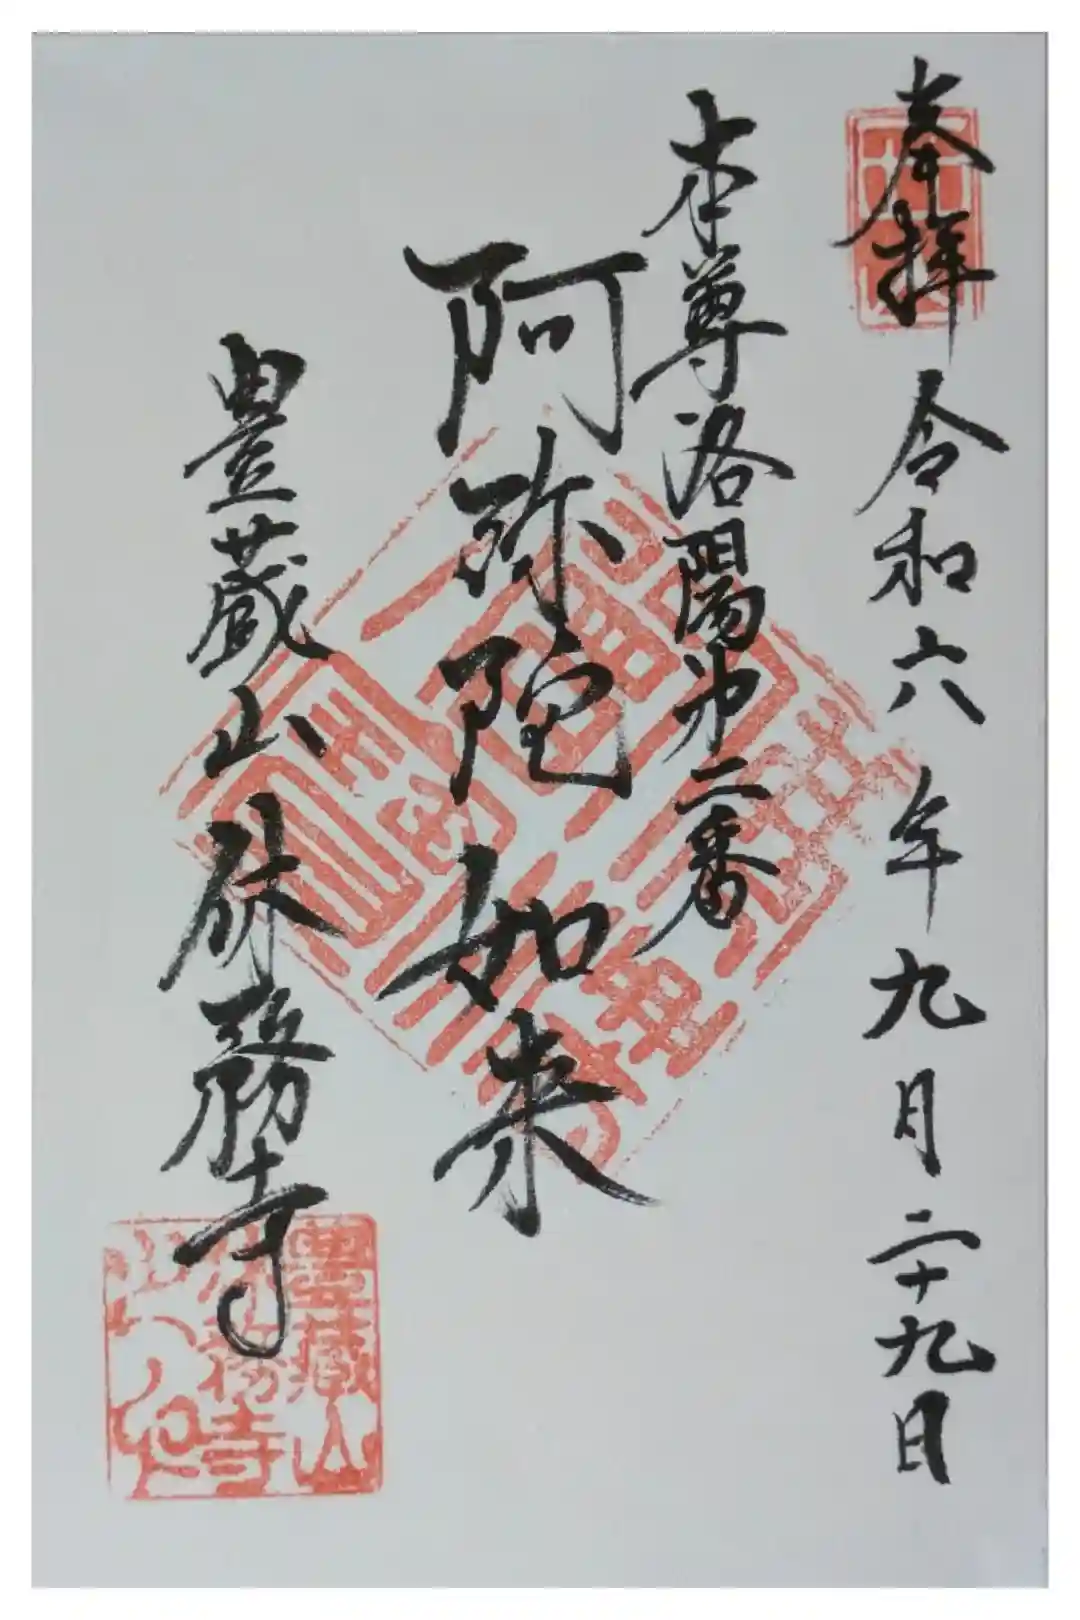 奉拝 令和六年九月二十九日
本尊洛陽第二番
阿弥陀如来
豊蔵山 休務寺
豊蔵山
休務寺